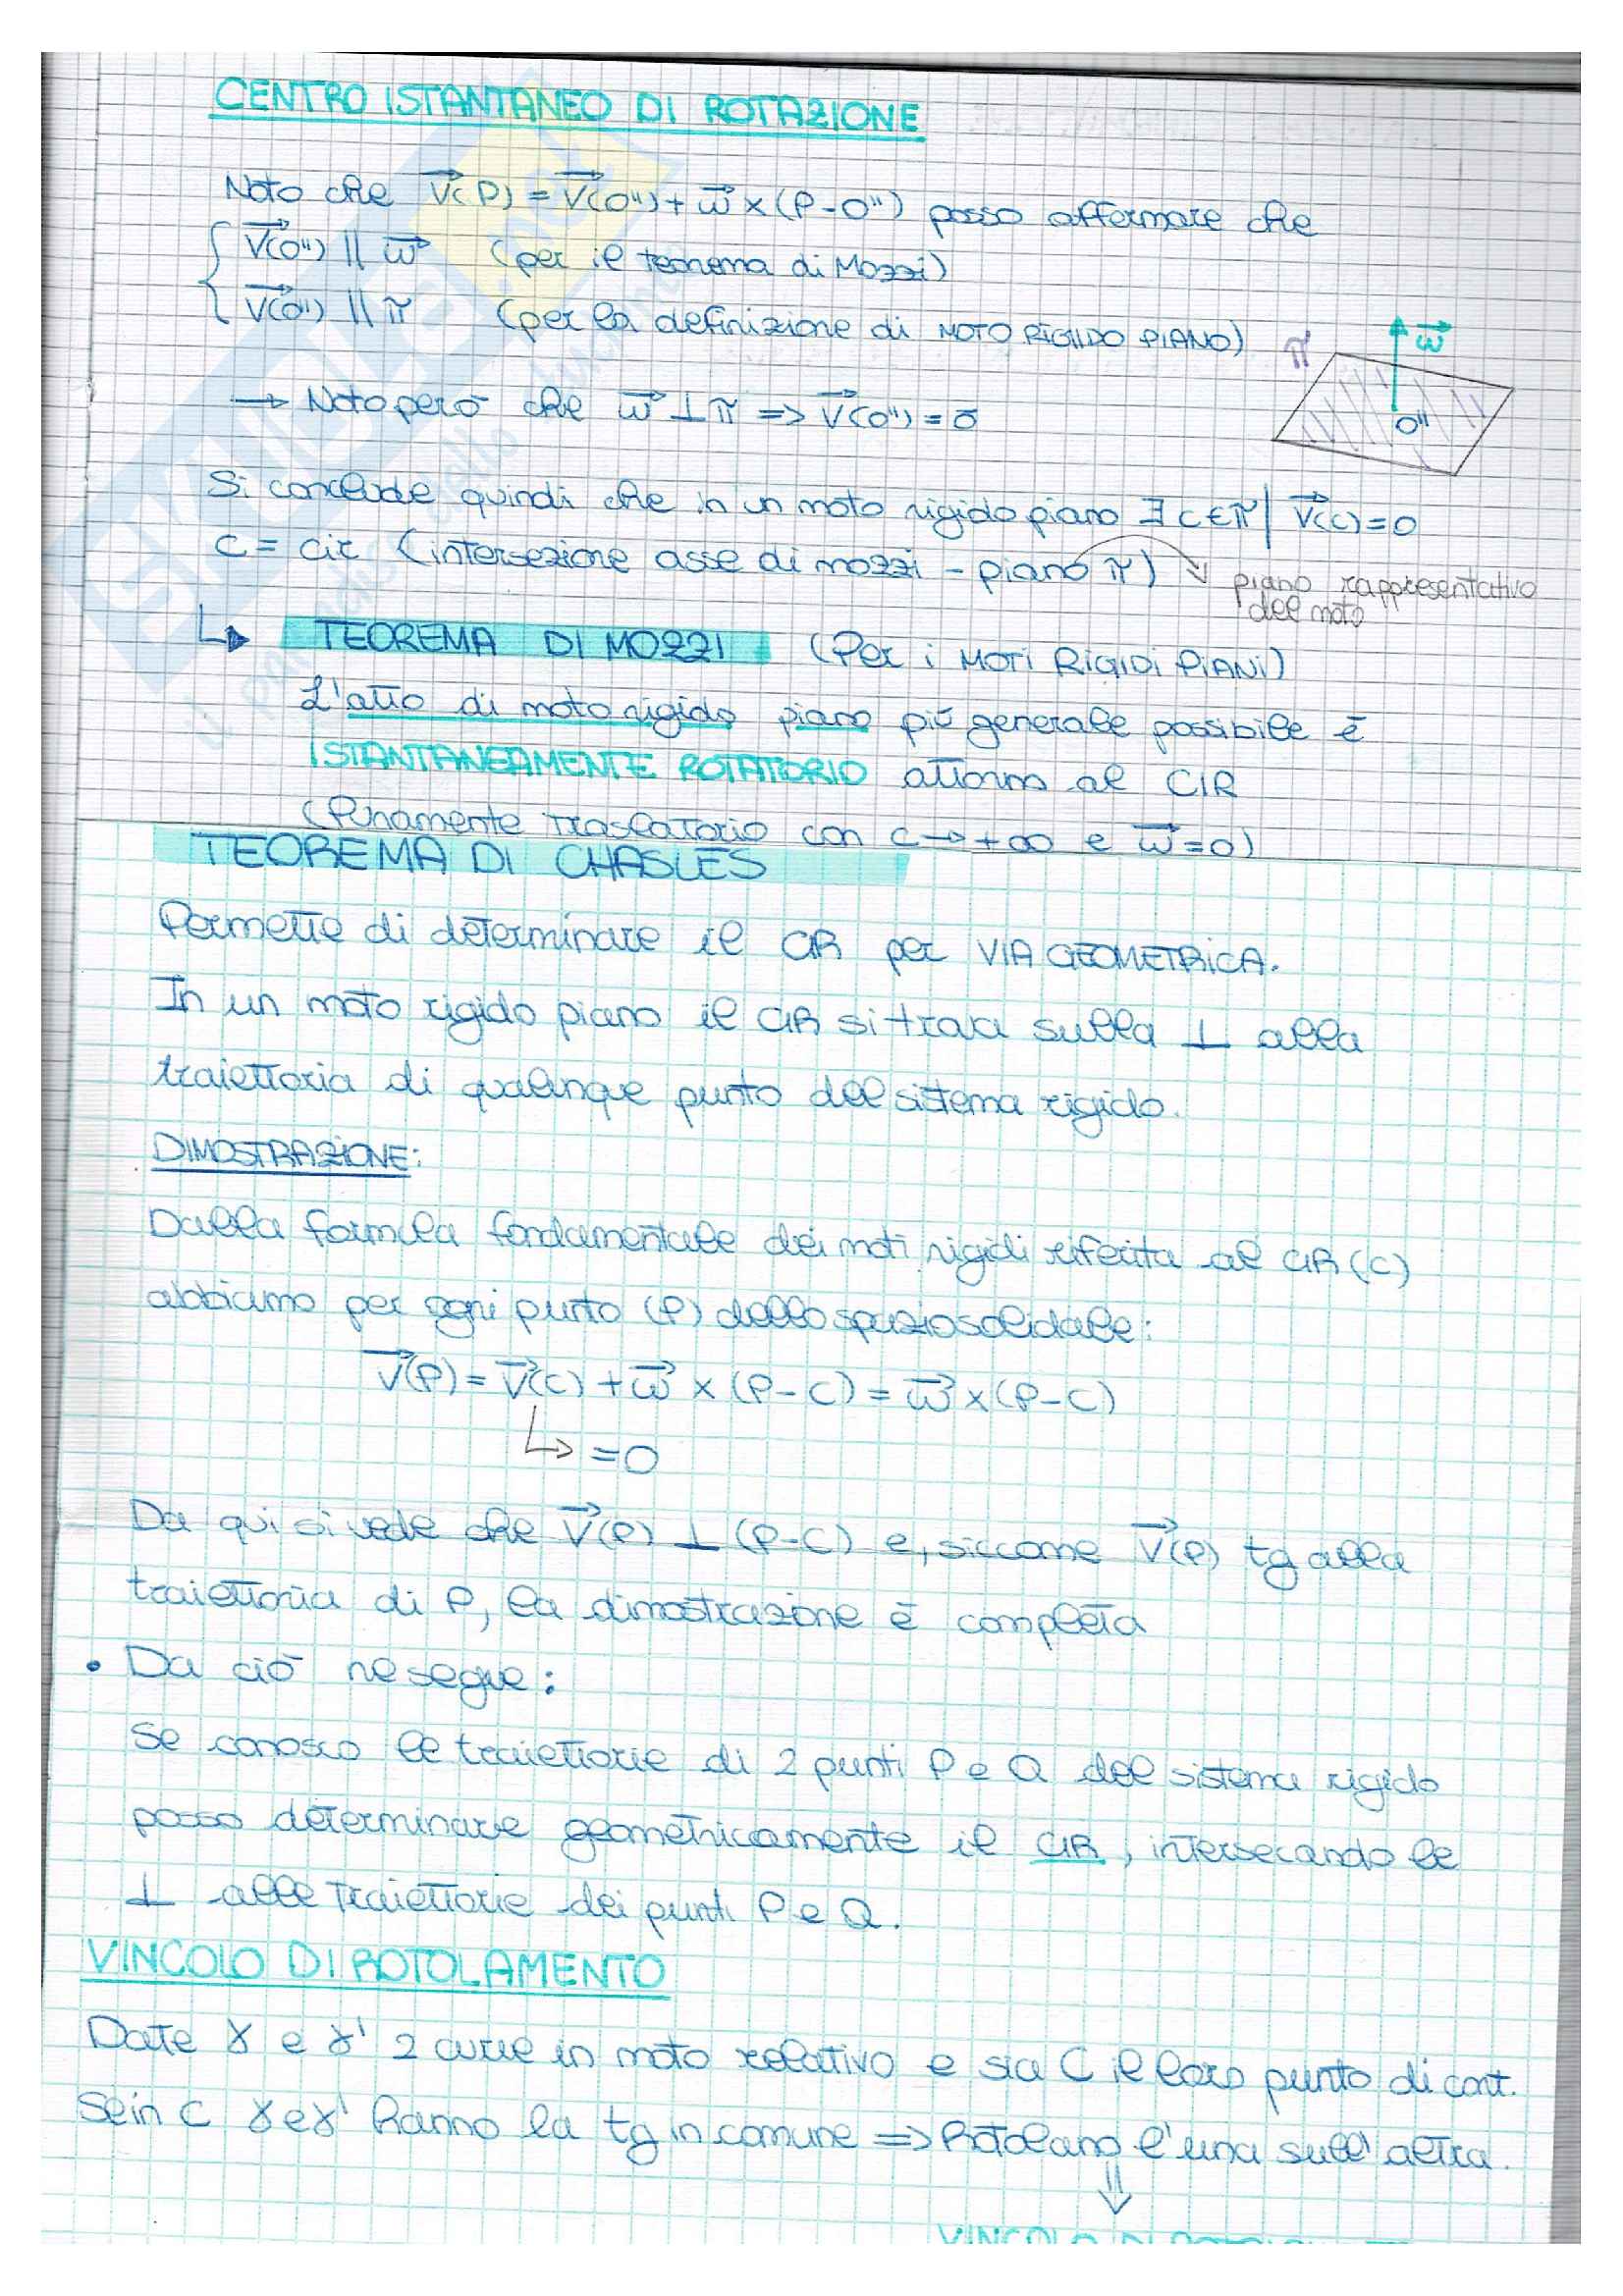 CENTRO ISTANTANEO DI ROTAZIONE
Noto che V(P) = V(O'') + ω x (P-O'') posso affermare che
{ V(O'') || ω (per il teorema di Mozzi)
V(O'') || π (per la definizione di MOTO RIGIDO PIANO)
π ω
O''
→ Noto però che ω ⊥ π => V(O'') = 0
Si conclude quindi che in un moto rigido piano ∃ C ∈ π | V(C) = 0
C = cir (intersezione asse di mozzi - piano π) piano rappresentativo
del moto
↳ TEOREMA DI MOZZI (Per i MOTI RIGIDI PIANI)
L'atto di moto rigido piano più generale possibile è
ISTANTANEAMENTE ROTATORIO attorno al CIR
(Puramente traslatorio con C → +∞ e ω = 0)
TEOREMA DI CHASLES
Permette di determinare il CIR per VIA GEOMETRICA.
In un moto rigido piano il CIR si trova sulla ⊥ alla
traiettoria di qualunque punto del sistema rigido.
DIMOSTRAZIONE:
Dalla formula fondamentale dei moti rigidi riferita al CIR (C)
abbiamo per ogni punto (P) dello spazio solidale:
V(P) = V(C) + ω x (P-C) = ω x (P-C)
↳ = 0
Da qui si vede che V(P) ⊥ (P-C) e, siccome V(P) tg alla
traiettoria di P, la dimostrazione è completa
• Da ciò ne segue:
Se conosco le traiettorie di 2 punti P e Q del sistema rigido
posso determinare geometricamente il CIR, intersecando le
⊥ alle traiettorie dei punti P e Q.
VINCOLO DI ROTOLAMENTO
Date γ e γ' 2 curve in moto relativo e sia C il loro punto di cont.
Se in C γ e γ' hanno la tg in comune => Rotolano l'una sull'altra.
⇓